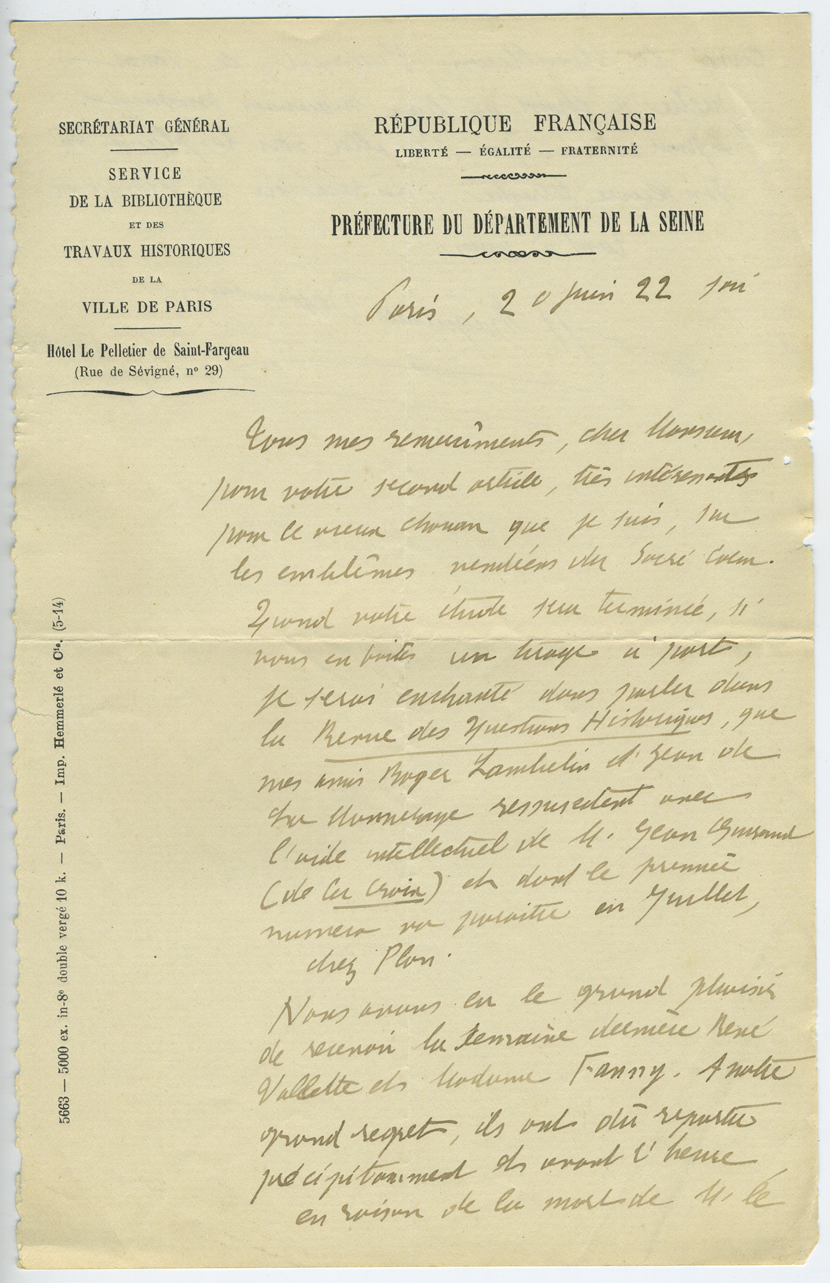 SECRÉTARIAT GÉNÉRAL
SERVICE
DE LA BIBLIOTHÈQUE
ET DES
TRAVAUX HISTORIQUES
DE LA
VILLE DE PARIS
Hôtel Le Pelletier de Saint-Fargeau
(Rue de Sévigné, nº 29)
RÉPUBLIQUE FRANÇAISE
LIBERTÉ — ÉGALITÉ — FRATERNITÉ
PRÉFECTURE DU DÉPARTEMENT DE LA SEINE
Paris, 20 Juin 22 soir
Tous mes remerciments, cher Monsieur,
pour votre second article, très intéressant
pour le vieux chouan que je suis, sur
les emblêmes vendéens du Sacré Cœur.
Quand votre étude sera terminée, si
vous en faites un tirage à part,
je serai enchanté d'en parler dans
la Revue des Questions Historiques, que
mes amis Roger Lambelin et Jean de
La Monneraye ressuscitent avec
l'aide intellectuel de M. Jean Guiraud
(de La Croix) et dont le premier
numéro va paraître en Juillet,
chez Plon.
Nous avons eu le grand plaisir
de recevoir la semaine dernière René
Vallette et Madame Fanny. A notre
grand regret, ils ont dû repartir
précipitamment et avant l'heure
en raison de la mort de M. le
5663 — 5000 ex. in-8º double vergé 10 k. — Paris. — Imp. Hemmerlé et Cie. (5-14)